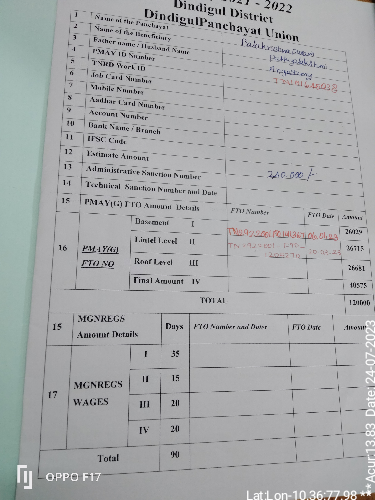 2021 - 2022
Dindigul District
DindigulPanchayat Union
1 Name of the Panchayat
2 Name of the Beneficiary
3 Father name / Husband Name
4 PMAY ID Number
5 TNRD Work ID
6 Job Card Number
7 Mobile Number
8 Aadhar Card Number
9 Account Number
10 Bank Name / Branch
11 IFSC Code
12 Estimate Amount 240,000 /-
13 Administrative Sanction Number
14 Technical Sanction Number and Date
15 PMAY(G) FTO Amount Details FTO Number FTO Date Amount
16 PMAY(G) FTO NO
Basement I 26029
Lintel Level II 26715
Roof Level III 26681
Final Amount IV 40575
TOTAL 120000
15 MGNREGS Amount Details Days FTO Number and Dater FTO Date Amoun
17 MGNREGS WAGES
I 35
II 15
III 20
IV 20
Total 90
OPPO F17
Lat:Lon-10.36:77.98
***Acur:13.83 Date:24-07-2023